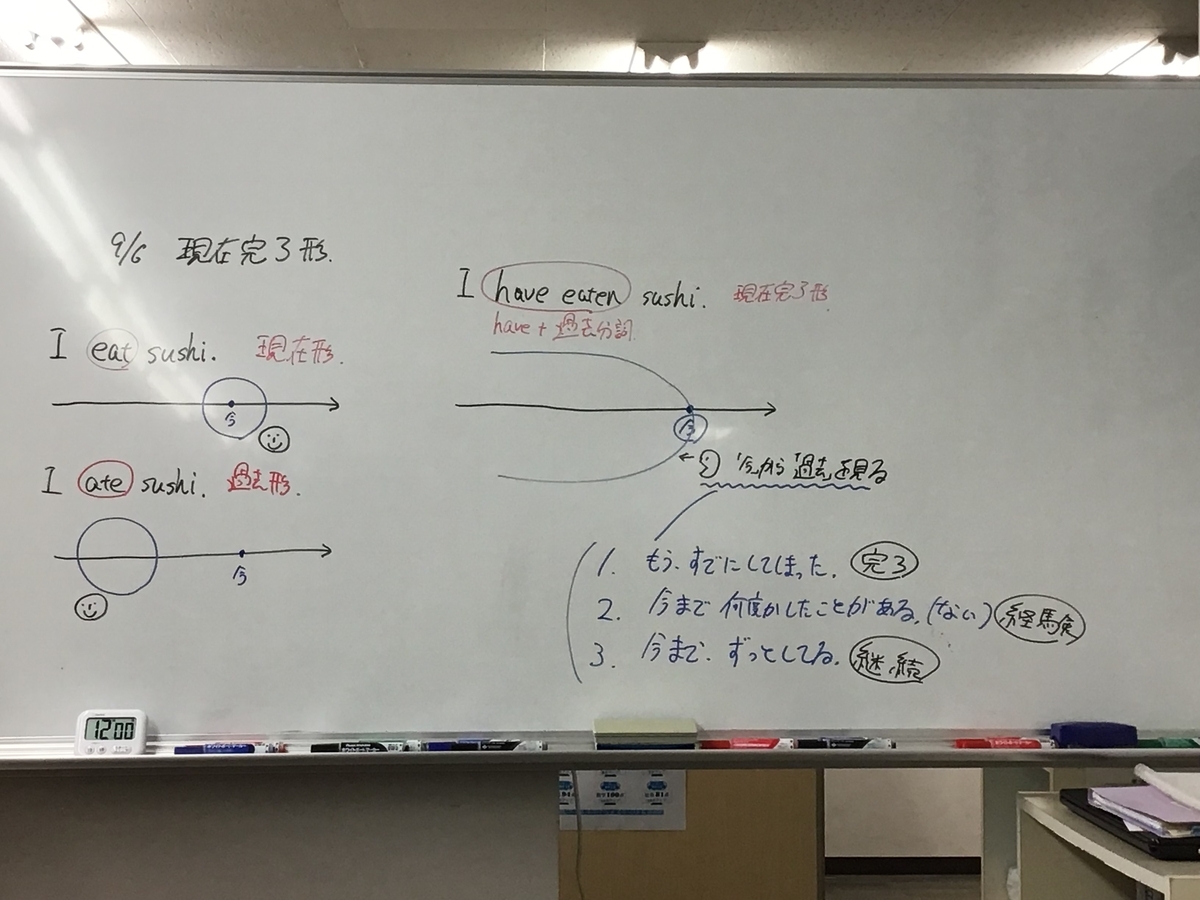 9/6 現在完了形.
I eat sushi. 現在形.
今
I ate sushi. 過去形.
今
I have eaten sushi. 現在完了形
have + 過去分詞
今
← 今から過去を見る
1. もう、すでにしてしまった. 完了
2. 今まで 何度かしたことがある. (ない) 経験
3. 今まで、ずっとしてる. 継続
12:00